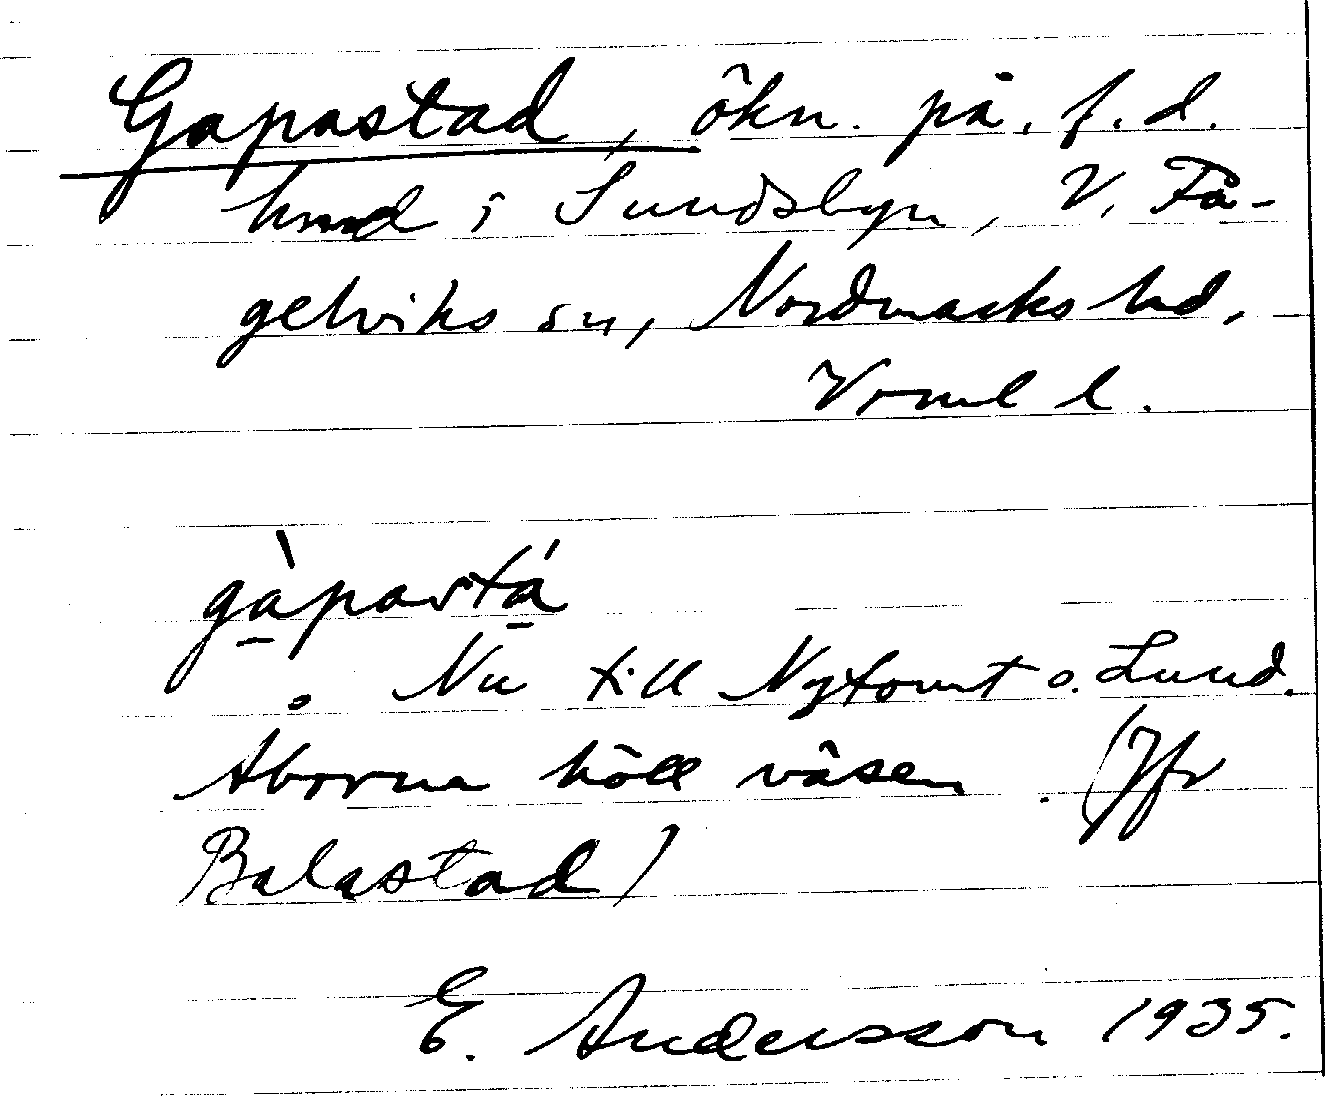 Gapastad, ökn. på f.d.
hmd i Sundsbyn, V. Få-
gelviks sn, Nordmarks hd,
Vrml l.
gàpastá
Nu till Nytomt o. Lund.
Åborna höll väsen. (Jfr
Balastad)
E. Andersson 1935.